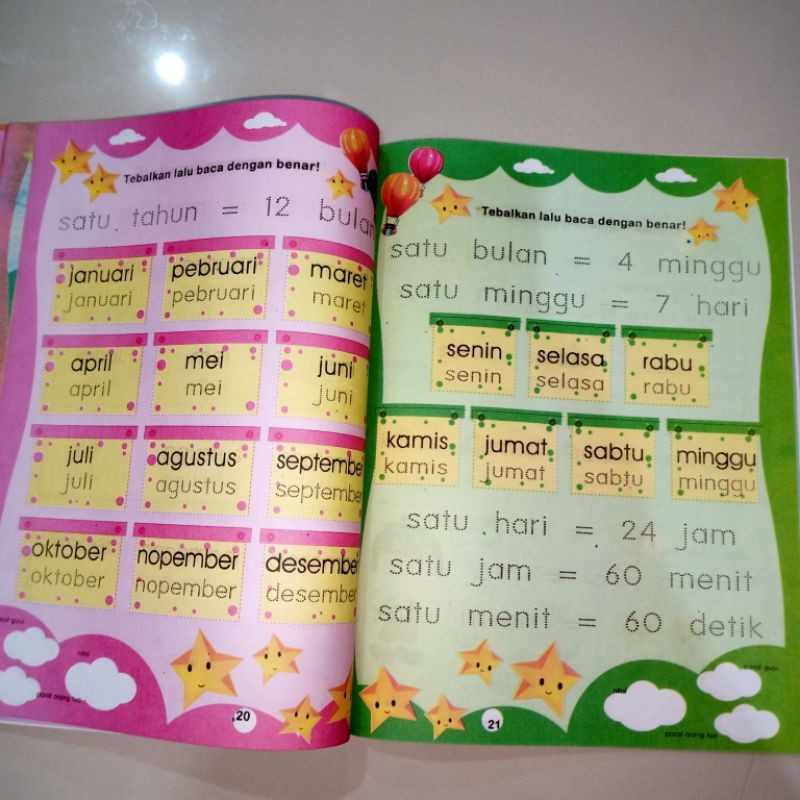 Tebalkan lalu baca dengan benar!
satu tahun = 12 bulan
januari pebruari maret
januari pebruari maret
april mei juni
april mei juni
juli agustus september
juli agustus september
oktober nopember desember
oktober nopember desember
nilai
paraf orang tua
20
Tebalkan lalu baca dengan benar!
satu bulan = 4 minggu
satu minggu = 7 hari
senin selasa rabu
senin selasa rabu
kamis jumat sabtu minggu
kamis jumat sabtu minggu
satu hari = 24 jam
satu jam = 60 menit
satu menit = 60 detik
nilai
paraf guru
paraf orang tua
21